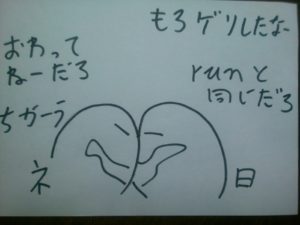 もろゲリしたなー
おわって
ねーだろ
ちがーう
runと
同じだろ
ネ
日